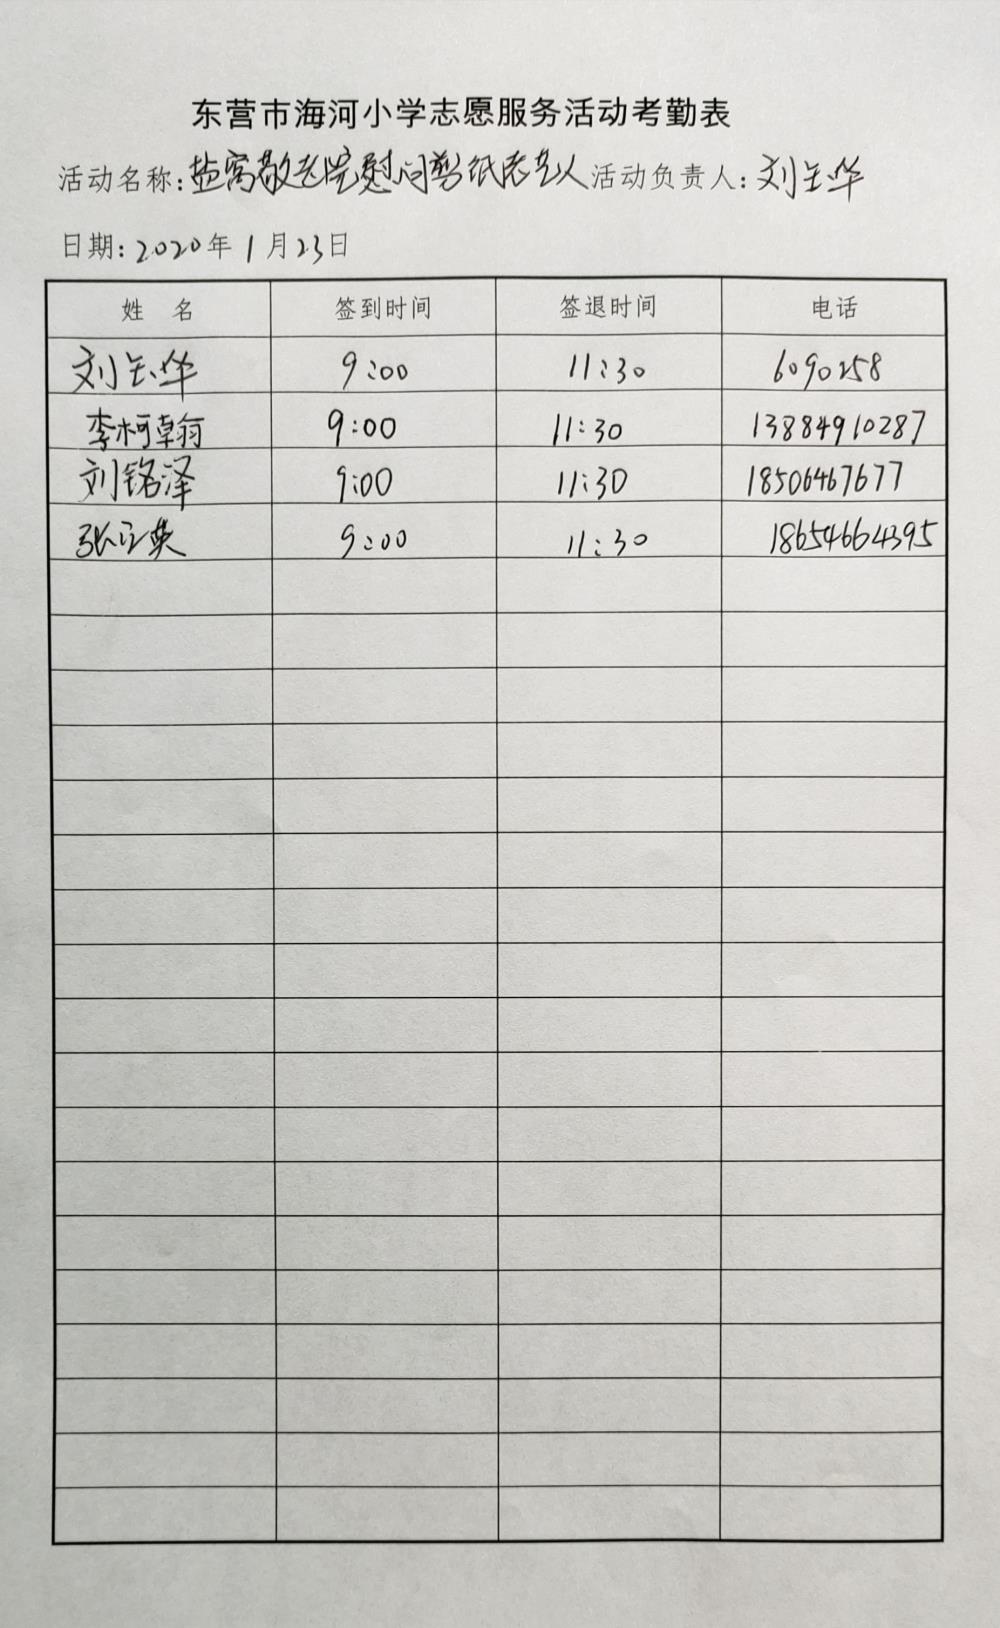 东营市海河小学志愿服务活动考勤表
活动名称:盐窝敬老院慰问剪纸老艺人 活动负责人:刘玉华
日期:2020年1月23日
姓 名 签到时间 签退时间 电话
刘玉华 9:00 11:30 6090258
李柯翰 9:00 11:30 13884910287
刘铭泽 9:00 11:30 18506467677
张立英 9:00 11:30 18654664395